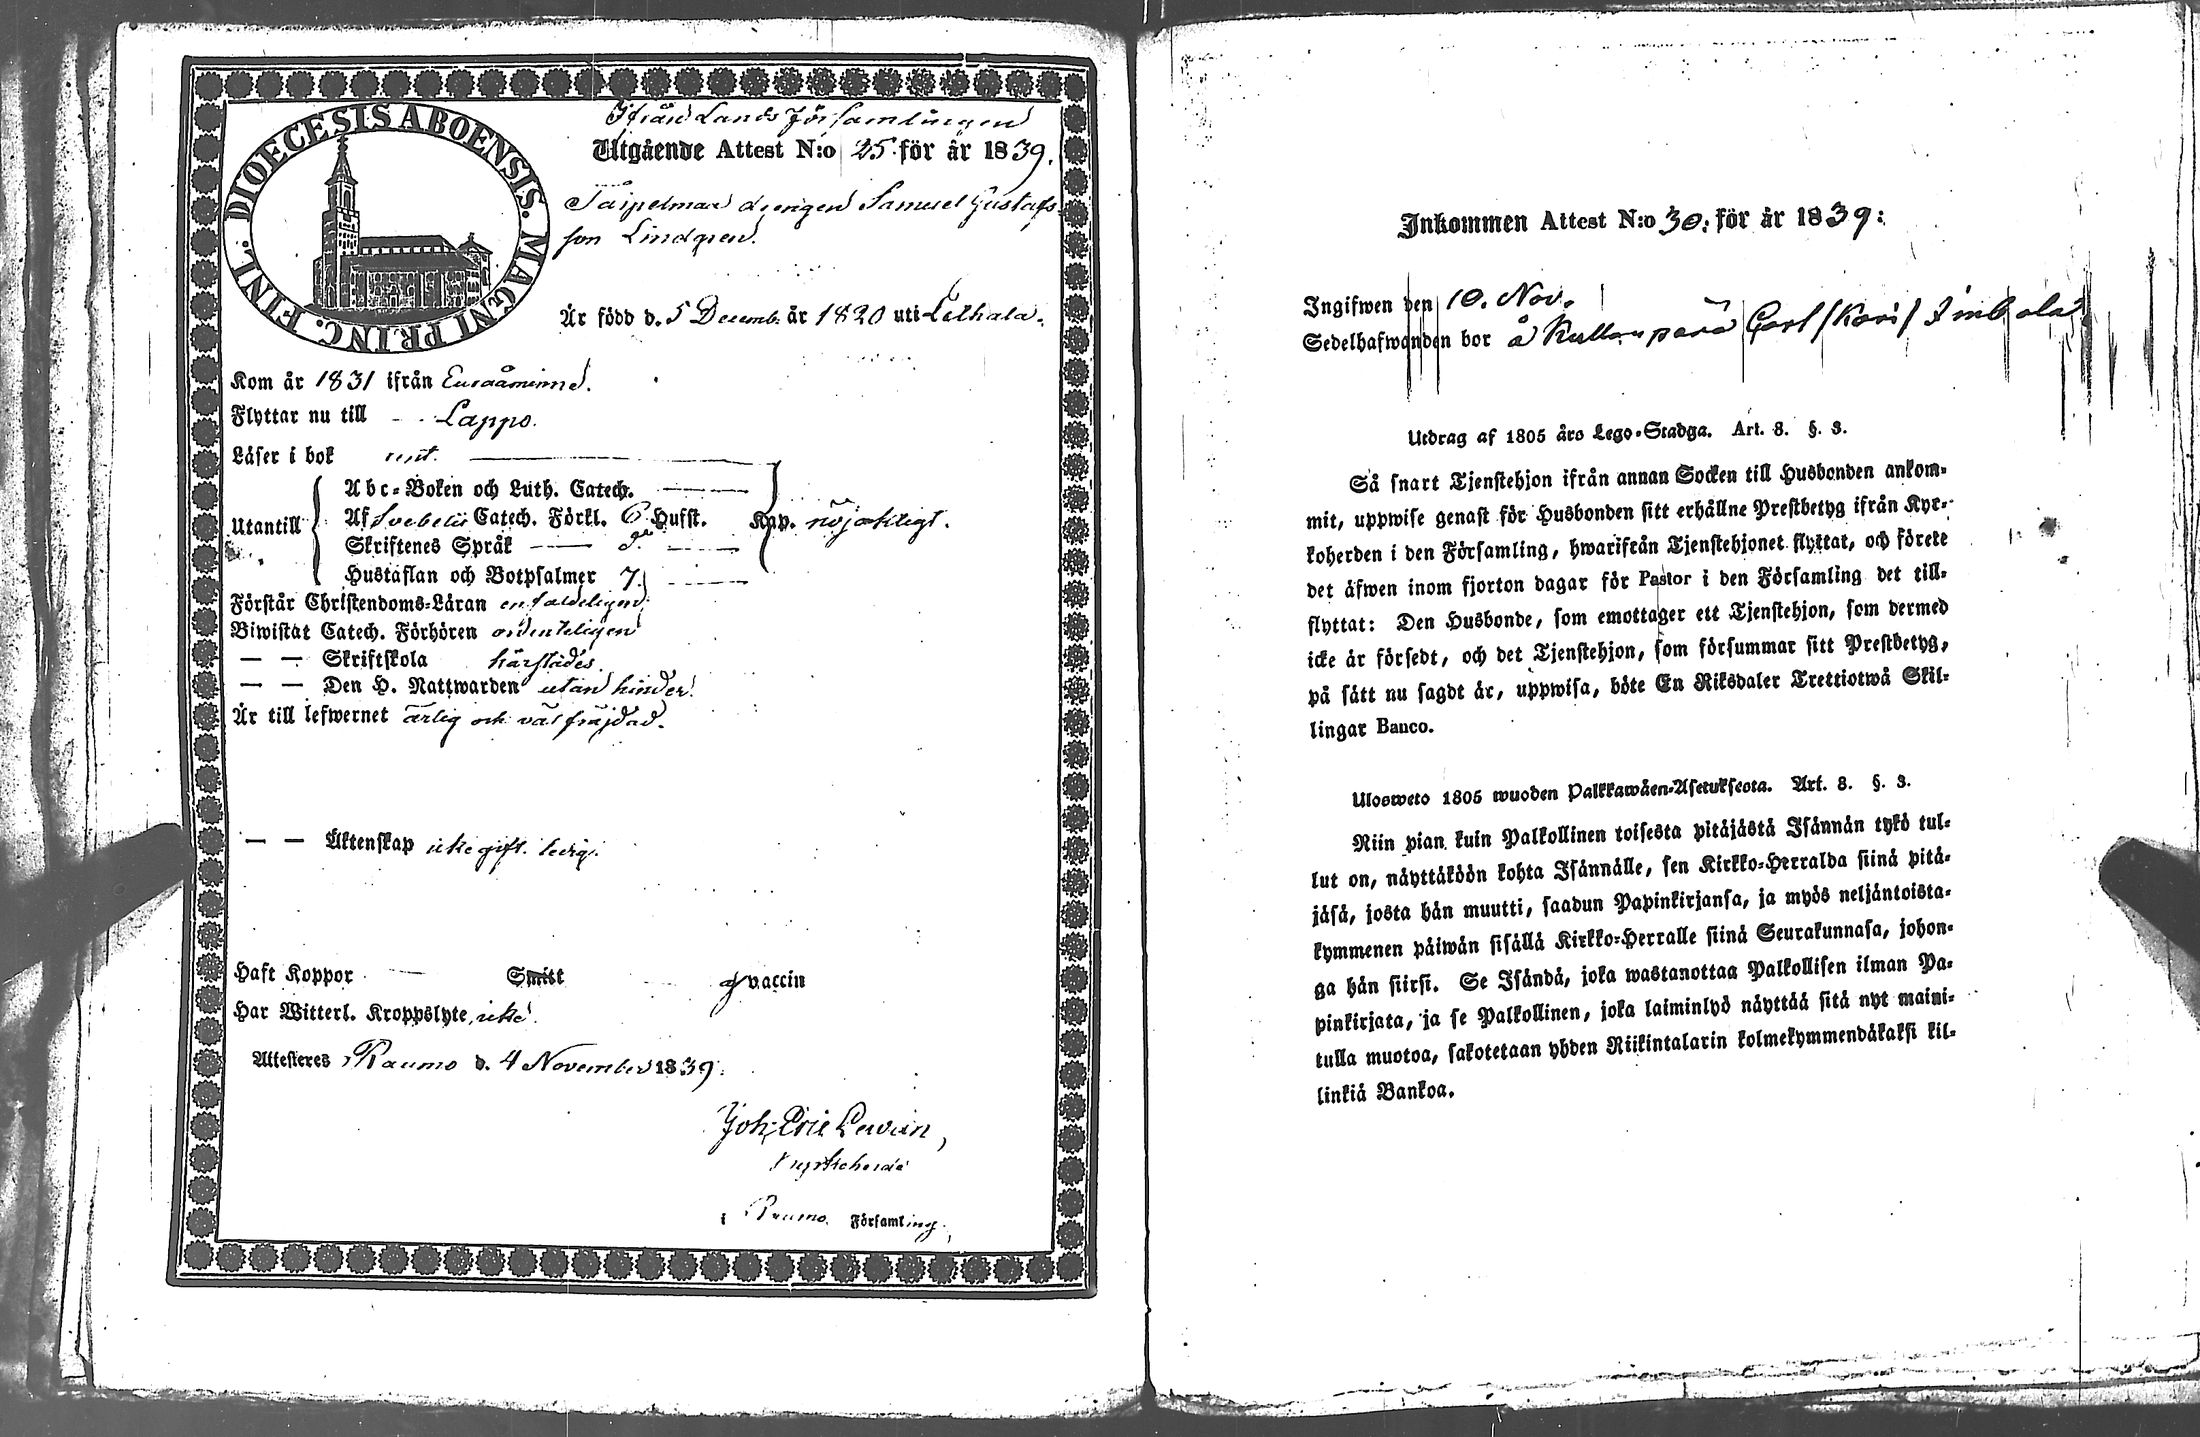 DIOECESIS ABOENSIS. MAGNI PRINC. FINL.
Ifrån Lands församlingen
Utgående Attest N:o 25 för år 1839.
drengen Samuel Gustafs-
son Lindgren.
Är född d. 5 Decemb. år 1820 uti
Kom år 1831 ifrån Euraåminne.
Flyttar nu till Lappo.
Läser i bok rent.
Utantill
Abc-Boken och Luth. Catech.
Af Svebelii Catech. Förkl. 6 Hufst. Kap. nöjaktligt.
Skriftenes Språk
Hustaflan och Botpsalmer 7.
Förstår Christendoms-Läran enfaldeligen
Biwistat Catech. Förhören ordenteligen
— — Skriftskola härstädes.
— — Den H. Nattwarden utan hinder.
Är till lefwernet ärlig och väl fräjdad.
— — Äktenskap icke gift. ledig.
Haft Koppor — Smitt vaccin
Har Witterl. Kroppslyte icke.
Attesteres Raumo d. 4 November 1839.
Joh. Eric Levin,
Kyrkoherde
i Raumo Församling.
Inkommen Attest N:o 30: för år 1839:
Ingifwen den 10. Nov.
Sedelhafwanden bor å
Utdrag af 1805 års Lego-Stadga. Art. 8. §. 3.
Så snart Tjenstehjon ifrån annan Socken till Husbonden ankom-
mit, uppwise genast för Husbonden sitt erhållne Prestbetyg ifrån Kyr-
koherden i den Församling, hwarifrån Tjenstehjonet flyttat, och förete
det äfwen inom fjorton dagar för Pastor i den Församling det till-
flyttat: Den Husbonde, som emottager ett Tjenstehjon, som dermed
icke är försedt, och det Tjenstehjon, som försummar sitt Prestbetyg,
på sätt nu sagdt är, uppwisa, böte En Riksdaler Trettiotwå Skil-
lingar Banco.
Ulosweto 1805 wuoden Palkkawäen-Asetuksesta. Art. 8. §. 3.
Niin pian kuin Palkollinen toisesta pitäjästä Isännän tykö tul-
lut on, näyttäköön kohta Isännälle, sen Kirkko-Herralda siinä pitä-
jäsä, josta hän muutti, saadun Papinkirjansa, ja myös neljäntoista-
kymmenen päiwän sisällä Kirkko-Herralle siinä Seurakunnasa, johon-
ga hän siirsi. Se Isändä, joka wastanottaa Palkollisen ilman Pa-
pinkirjata, ja se Palkollinen, joka laiminlyö näyttää sitä nyt maini-
tulla muotoa, sakotetaan yhden Riikintalarin kolmekymmendäkaksi kil-
linkiä Bankoa.